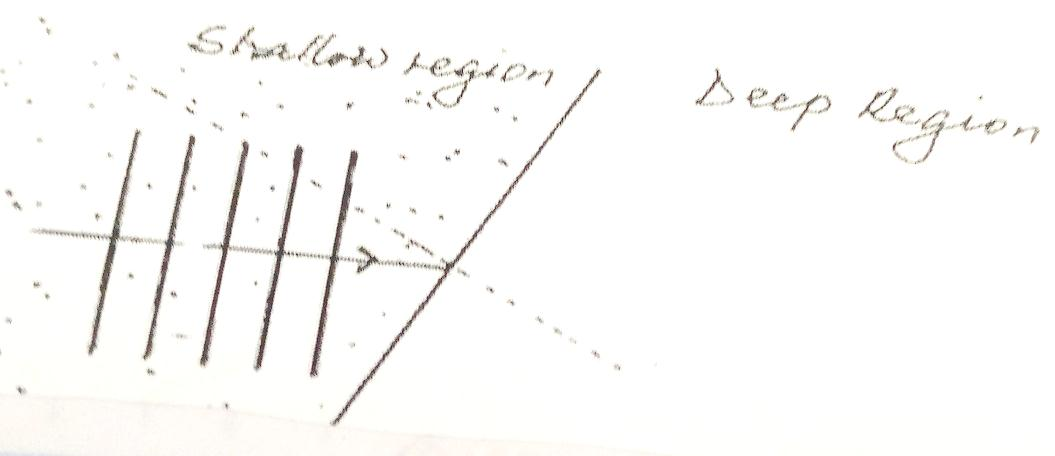 Shallow region
Deep Region